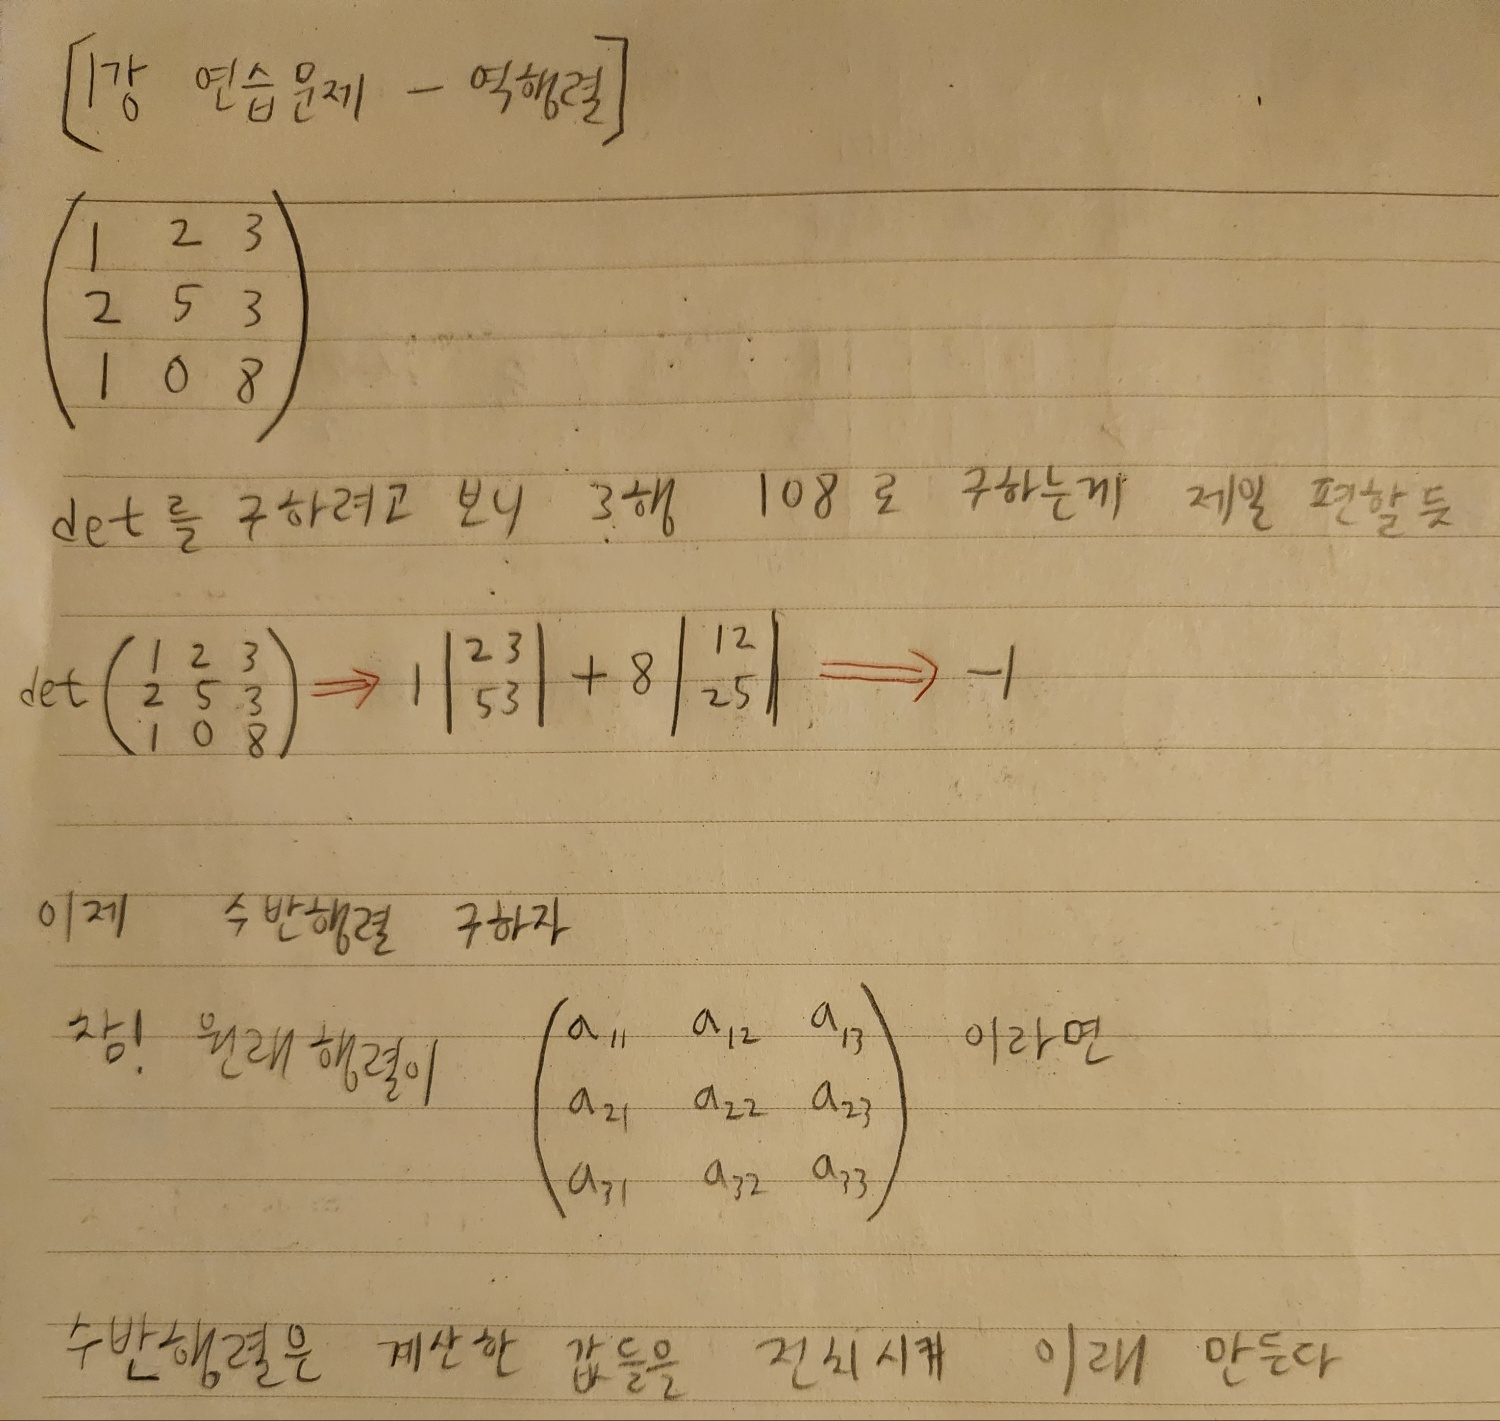 [1강 연습문제 - 역행렬]
1 2 3
2 5 3
1 0 8
det를 구하려고 보니 3행 108로 구하는게 제일 편할듯
det (1 2 3 / 2 5 3 / 1 0 8) ⇒ 1 |2 3 / 5 3| + 8 |1 2 / 2 5| ⇒ -1
이제 수반행렬 구하자
참! 원래행렬이 (a11 a12 a13 / a21 a22 a23 / a31 a32 a33) 이라면
수반행렬은 계산한 값들을 전치시켜 이래 만든다